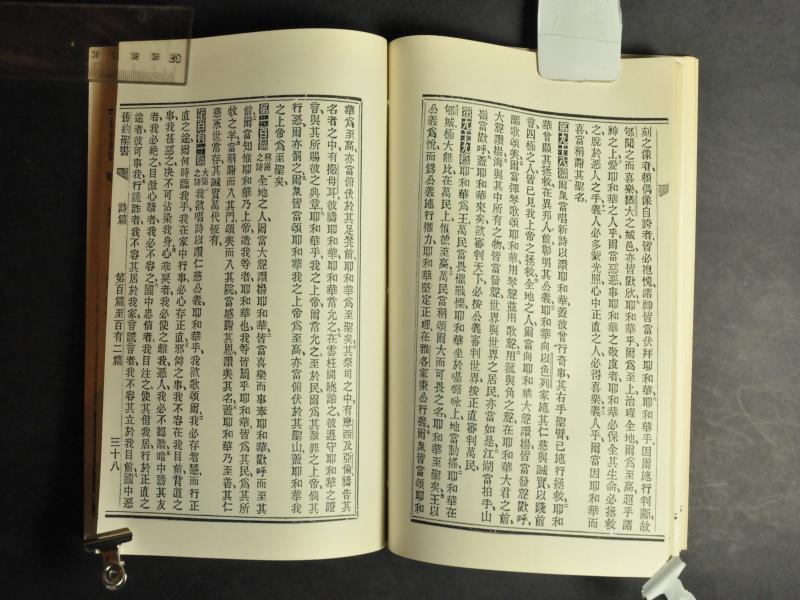 刻之像者賴偶像自誇者皆必抱愧諸神皆當伏拜耶和華耶和華乎因爾施行判斷故
郇聞之而喜樂猶大之城邑亦皆歡欣耶和華乎爾爲至上治理全地爾爲至高超乎諸
神之上愛耶和華之人乎爾當惡惡事耶和華之敬虔者耶和華必保全其生命必拯救
之脫於惡人之手義人必多蒙光照心中正直之人必得喜樂義人乎爾當因耶和華而
喜當稱讚其聖名
第九十八篇爾衆當唱新詩以讚耶和華蓋彼曾行奇事其右手聖臂已施行拯救耶和
華曾顯其拯救在異邦人前彰明其公義耶和華向以色列家施其仁慈與誠實以踐前
言四極之人皆已見我上帝之拯救全地之人爾當向耶和華大聲讚揚皆當發聲歡呼
謳歌頌美爾當彈琴歌頌耶和華用琴聲並用歌聲用號與角之聲在耶和華大君之前
大聲讚揚海與其中所有之物皆當發聲世界與世界之居民亦當如是江湖當拍手山
嶺當歡呼蓋耶和華來矣欲審判天下必按公義審判世界按正直審判萬民
第九十九篇耶和華爲王萬民當畏懼戰慄耶和華坐於基路咏上地當動搖耶和華在
郇城極大無比在萬民上恒爲至高萬民當稱頌爾大而可畏之名耶和華至聖矣王以
公義爲悅而爾爲公義施行權力耶和華堅定正理在雅各家秉公行義爾衆皆當頌耶和
華爲至高當俯伏於其足凳前耶和華爲至聖矣其祭司之中有摩西及亞倫禱告其
名者之中有撒母耳彼禱耶和華耶和華常允之在雲柱間諭諸彼遵守耶和華之證
言與其所賜彼之典章耶和華乎我之上帝爾常允之至於民爾爲其赦罪之上帝倘其
行惡爾亦罰之爾衆皆當頌耶和華我之上帝爲至高亦當俯伏於其聖山蓋耶和華我
之上帝爲至聖矣
第一百篇稱謝之詩全地之人爾當大聲讚揚耶和華皆當喜樂而事奉耶和華歡呼而至其
前爾當知惟耶和華乃上帝造我等者耶和華也我等皆屬乎耶和華皆爲其民爲其所
牧之羊當稱謝而入其門頌美而入其院當感謝其恩讚美其名蓋耶和華乃至善其仁
慈永世常存其誠實萬代恆有
第百有一篇大闢之詩我欲唱詩以讚仁慈公義耶和華乎我欲歌頌爾我必存智慧而行正
直之途爾何時臨我乎我在家中行事必心存正直邪僻之事我不容在我目前背道之
事我甚惡之决不可沾染我身心乖戾者我必使之離我惡人我必不認識暗中謗其友
者我必絕之目傲心驕者我必不容之國中忠信者我目注之使其偕我居行於正直之
途者彼可事我行詭詐者我不容其居於我家言謊言者我不容其立於我目前國中惡
舊約聖書 詩篇 第百篇至百有二篇 三十八